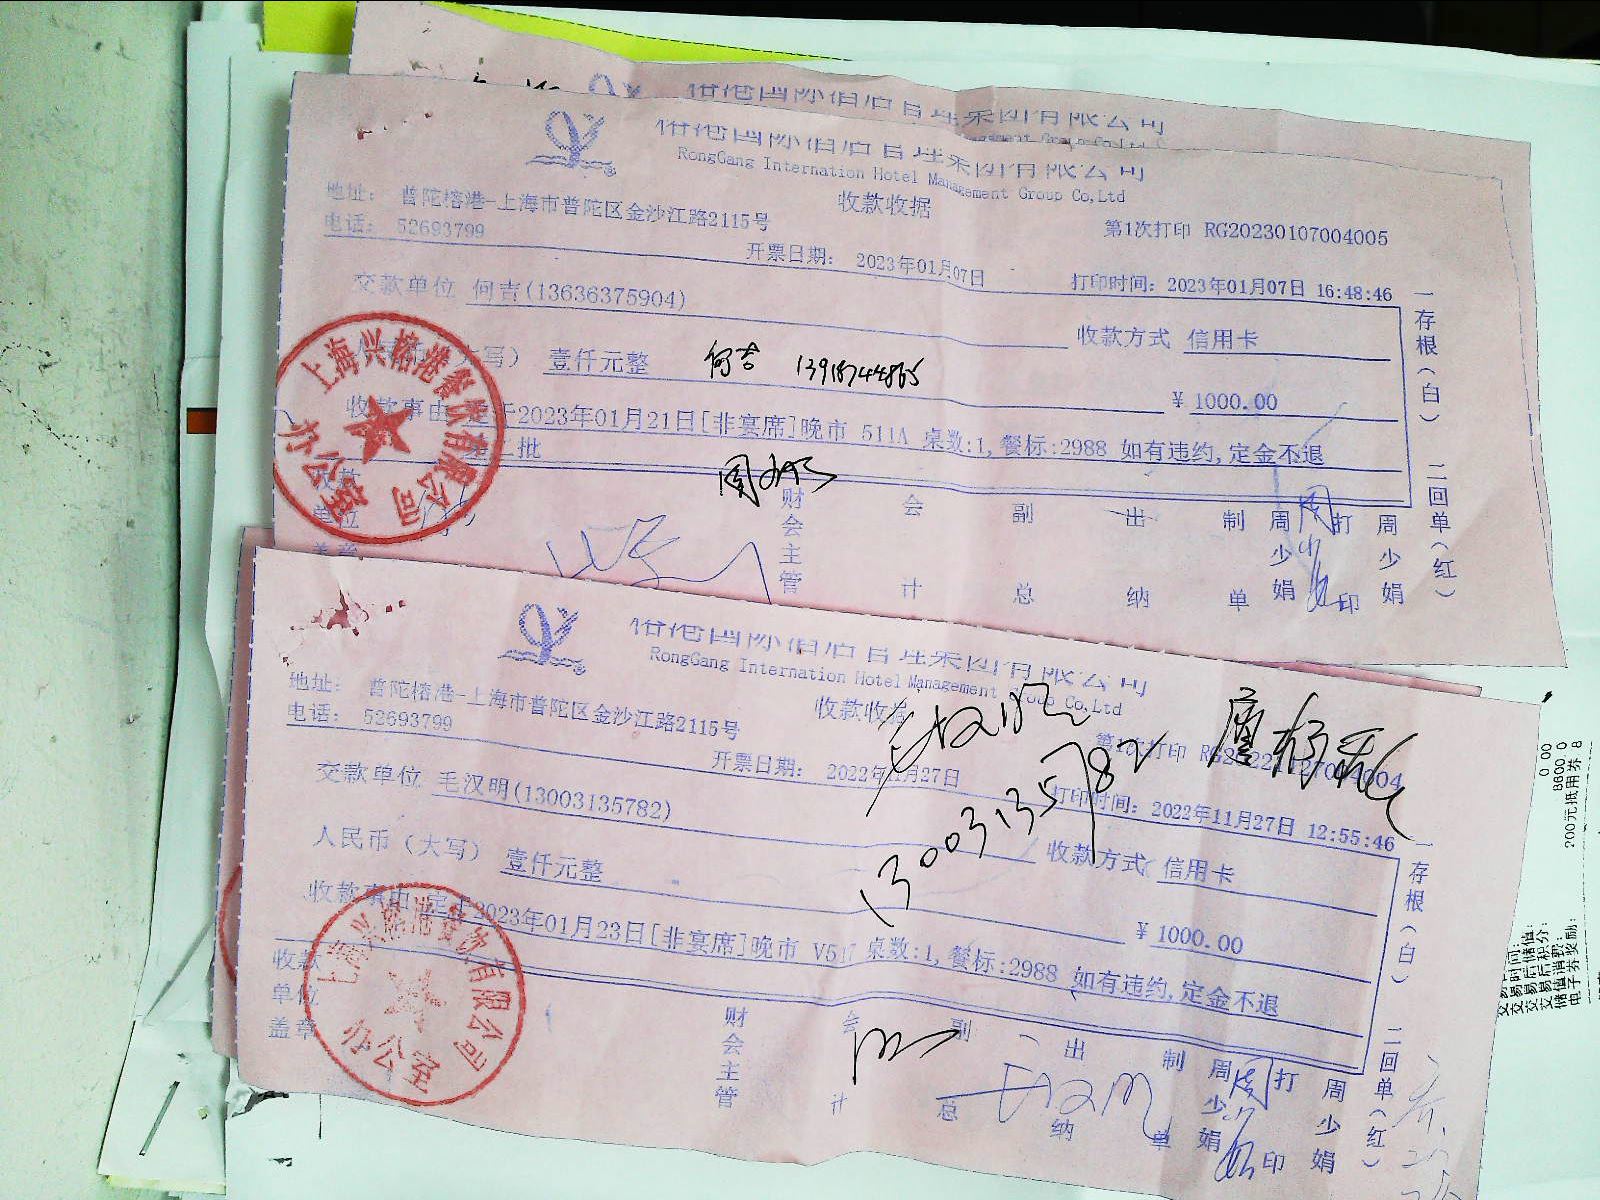 RongGang International Hotel Management Group Co,Ltd
收款收据
地址: 普陀榕港-上海市普陀区金沙江路2115号
电话: 52693799
第1次打印 RG20230107004005
开票日期: 2023年01月07日
打印时间: 2023年01月07日 16:48:46
交款单位 何吉(13636375904)
收款方式 信用卡
大写) 壹仟元整
何吉 13918744865
¥ 1000.00
收款事由 定于2023年01月21日[非宴席]晚市 511A 桌数:1,餐标:2988 如有违约,定金不退
第二批
收款单位盖章
财会主管 会计 副总 出纳 制单 周少娟 打印 周少娟
一存根(白) 二回单(红)
上海兴榕港餐饮有限公司
办公室
RongGang International Hotel Management Group Co,Ltd
收款收据
地址: 普陀榕港-上海市普陀区金沙江路2115号
电话: 52693799
第1次打印 RG20221127004004
开票日期: 2022年11月27日
打印时间: 2022年11月27日 12:55:46
交款单位 毛汉明(13003135782)
13003135782
人民币(大写) 壹仟元整
收款方式 信用卡
¥ 1000.00
收款事由 定于2023年01月23日[非宴席]晚市 V517 桌数:1,餐标:2988 如有违约,定金不退
收款单位盖章
财会主管 会计 副总 出纳 制单 周少娟 打印 周少娟
一存根(白) 二回单(红)
办公室
交易后储值:
交易后积分:
储值消费:
电子券奖励:
200元抵用券 8